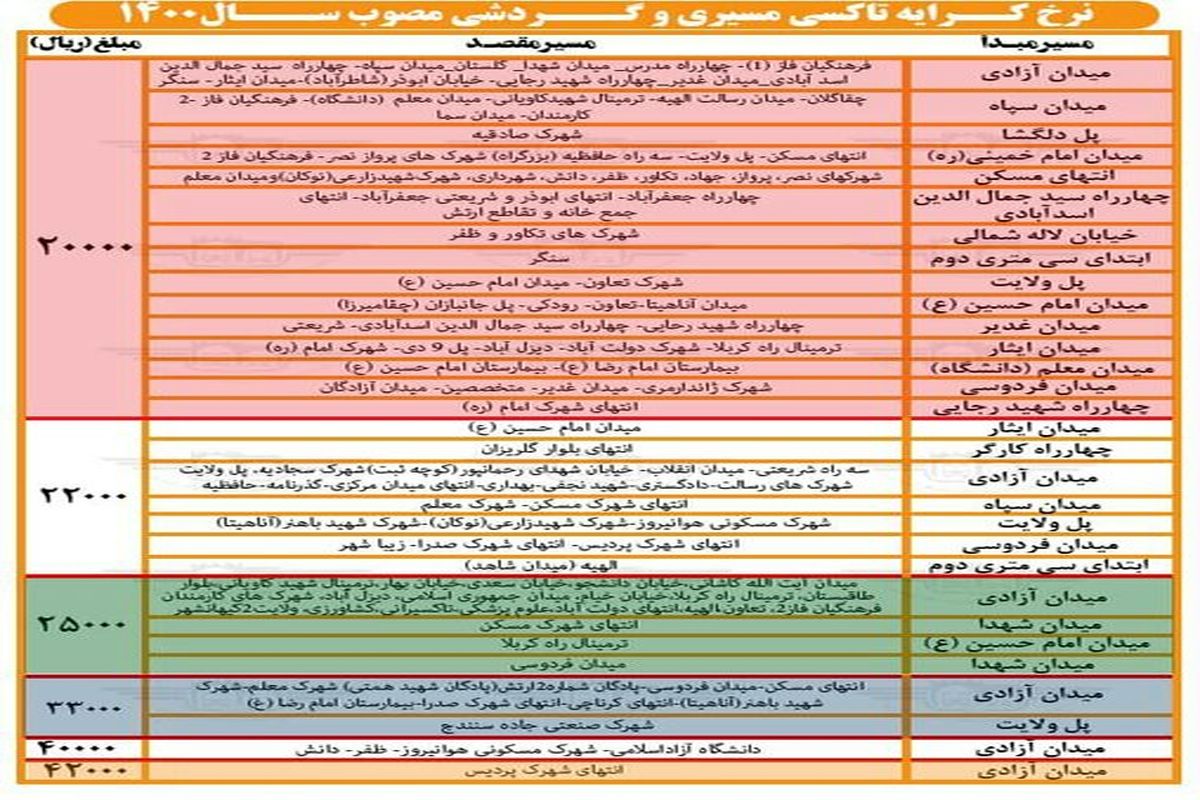 نرخ کرایه تاکسی مسیری و گردشی مصوب سال ۱۴۰۰
مسیر مبدا مسیر مقصد مبلغ (ریال)
میدان آزادی فرهنگیان فاز (1)- چهارراه مدرس_ میدان شهدا_ گلستان_میدان سپاه- چهارراه سید جمال الدین
اسد آبادی_میدان غدیر_چهارراه شهید رجایی- خیابان ابوذر(شاطرآباد)-میدان ایثار- سنگر
میدان سپاه چقاگلان- میدان رسالت الهیه- ترمینال شهیدکاویانی- میدان معلم (دانشگاه)- فرهنگیان فاز 2-
کارمندان- میدان سما
پل دلگشا شهرک صادقیه
میدان امام خمینی(ره) انتهای مسکن- پل ولایت- سه راه حافظیه (بزرگراه) شهرک های پرواز نصر- فرهنگیان فاز 2
انتهای مسکن شهرکهای نصر، پرواز، جهاد، تکاور، ظفر، دانش، شهرداری، شهرک‌شهیدزارعی(نوکان)ومیدان معلم
چهارراه سید جمال الدین چهارراه جعفرآباد- انتهای ابوذر و شریعتی جعفرآباد- انتهای
اسدآبادی جمع خانه و تقاطع ارتش
۲۰۰۰۰
خیابان لاله شمالی شهرک های تکاور و ظفر
ابتدای سی متری دوم سنگر
پل ولایت شهرک تعاون- میدان امام حسین (ع)
میدان امام حسین (ع) میدان آناهیتا-تعاون- رودکی- پل جانبازان (چقامیرزا)
میدان غدیر چهارراه شهید رجایی- چهارراه سید جمال الدین اسدآبادی- شریعتی
میدان ایثار ترمینال راه کربلا- شهرک دولت آباد- دیزل آباد- پل 9 دی- شهرک امام (ره)
میدان معلم (دانشگاه) بیمارستان امام رضا (ع)- بیمارستان امام حسین (ع)
میدان فردوسی شهرک ژاندارمری- میدان غدیر- متخصصین- میدان آزادگان
چهارراه شهید رجایی انتهای شهرک امام (ره)
میدان ایثار میدان امام حسین (ع)
چهارراه کارگر انتهای بلوار گلریزان
میدان آزادی سه راه شریعتی- میدان انقلاب- خیابان شهدای رحمانپور(کوچه ثبت)شهرک سجادیه، پل ولایت
شهرک های رسالت-دادگستری-شهید نجفی-بهداری-انتهای میدان مرکزی-گذرنامه-حافظیه
۲۲۰۰۰
میدان سپاه انتهای شهرک مسکن- شهرک معلم
پل ولایت شهرک مسکونی هوانیروز-شهرک شهیدزارعی(نوکان)-شهرک شهید باهنر(آناهیتا)
میدان فردوسی انتهای شهرک پردیس- انتهای شهرک صدرا- زیبا شهر
ابتدای سی متری دوم الهیه (میدان شاهد)
میدان آزادی میدان آیت الله کاشانی،خیابان دانشجو،خیابان سعدی،خیابان بهار،ترمینال شهید کاویانی،بلوار
طاقبستان، ترمینال راه کربلا،خیابان خیام، میدان جمهوری اسلامی، دیزل آباد، شهرک های کارمندان
فرهنگیان فاز2، تعاون،الهیه،انتهای دولت آباد،علوم پزشکی،تاکسیرانی،کشاورزی، ولایت2کیهانشهر
میدان شهدا انتهای شهرک مسکن ۲۵۰۰۰
میدان امام حسین (ع) ترمینال راه کربلا
میدان شهدا میدان فردوسی
میدان آزادی انتهای مسکن-میدان فردوسی-پادگان شماره2ارتش(پادگان شهید همتی) شهرک معلم-شهرک
شهید باهنر(آناهیتا)-انتهای کرناچی-انتهای شهرک صدرا-بیمارستان امام رضا (ع)
۳۳۰۰۰
پل ولایت شهرک صنعتی جاده سنندج
میدان آزادی دانشگاه آزاداسلامی- شهرک مسکونی هوانیروز- ظفر- دانش ۴۰۰۰۰
میدان آزادی انتهای شهرک پردیس ۴۲۰۰۰